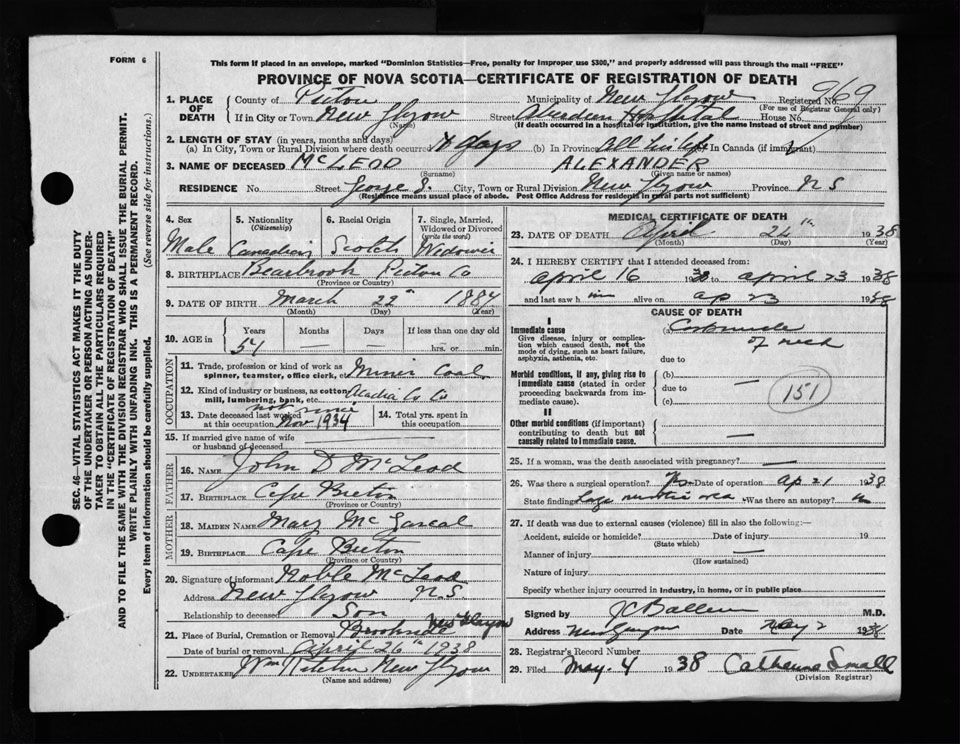 FORM 6
This form if placed in an envelope, marked "Dominion Statistics—Free, penalty for improper use $300," and properly addressed will pass through the mail "FREE"
PROVINCE OF NOVA SCOTIA—CERTIFICATE OF REGISTRATION OF DEATH
Registered No. 969
(For use of Registrar General only)
1. PLACE OF DEATH
County of Pictou Municipality of New Glasgow
If in City or Town New Glasgow Street Hospital House No.
(Name) (If death occurred in a hospital or institution, give the name instead of street and number)
2. LENGTH OF STAY (in years, months and days)
(a) In City, Town or Rural Division where death occurred days (b) In Province All his life (c) In Canada (if immigrant)
3. NAME OF DECEASED McLEOD ALEXANDER
(Surname) (Given name or names)
RESIDENCE No. Street George S. City, Town or Rural Division New Glasgow Province N S
(Residence means usual place of abode. Post Office Address for residents in rural parts not sufficient)
4. Sex Male
5. Nationality (Citizenship) Canadian
6. Racial Origin Scotch
7. Single, Married, Widowed or Divorced (write the word)
8. BIRTHPLACE Pictou Co
(Province or Country)
9. DATE OF BIRTH March 22 1884
(Month) (Day) (Year)
10. AGE in Years Months Days If less than one day old
54 hrs. or min.
OCCUPATION
11. Trade, profession or kind of work as spinner, teamster, office clerk, etc. Miner Coal
12. Kind of industry or business, as cotton mill, lumbering, bank, etc. Acadia Co Co
13. Date deceased last worked at this occupation not since Nov 1934
14. Total yrs. spent in this occupation
15. If married give name of wife or husband of deceased
FATHER
16. NAME John D McLeod
17. BIRTHPLACE Cape Breton
(Province or Country)
MOTHER
18. MAIDEN NAME Mary
19. BIRTHPLACE Cape Breton
(Province or Country)
20. Signature of informant Noble McLeod
Address New Glasgow N.S.
Relationship to deceased Son
21. Place of Burial, Cremation or Removal New Glasgow
Date of burial or removal April 26th 1938
22. UNDERTAKER New Glasgow
(Name and address)
MEDICAL CERTIFICATE OF DEATH
23. DATE OF DEATH April 24th 1938
(Month) (Day) (Year)
24. I HEREBY CERTIFY that I attended deceased from:
April 16 1938 to April 23 1938
and last saw him alive on Ap 23 1938
CAUSE OF DEATH
I
Immediate cause
Give disease, injury or complication which caused death, not the mode of dying, such as heart failure, asphyxia, asthenia, etc.
(a) Carbuncle of neck
due to
Morbid conditions, if any, giving rise to immediate cause (stated in order proceeding backwards from immediate cause).
(b) —
due to
(c)
151
II
Other morbid conditions (if important) contributing to death but not causally related to immediate cause.
—
25. If a woman, was the death associated with pregnancy? —
26. Was there a surgical operation? Yes Date of operation Ap 21 1938
State findings Large area Was there an autopsy? no
27. If death was due to external causes (violence) fill in also the following:—
Accident, suicide or homicide? Date of injury 19
(State which)
Manner of injury —
(How sustained)
Nature of injury
Specify whether injury occurred in Industry, in home, or in public place
Signed by M.D.
Address New Glasgow Date May 2 1938
28. Registrar's Record Number
29. Filed May. 4 1938 Catherine Small
(Division Registrar)
SEC. 46—VITAL STATISTICS ACT MAKES IT THE DUTY
OF THE UNDERTAKER OR PERSON ACTING AS UNDER-
TAKER TO OBTAIN ALL THE PARTICULARS REQUIRED
IN THE "CERTIFICATE OF REGISTRATION OF DEATH"
AND TO FILE THE SAME WITH THE DIVISION REGISTRAR WHO SHALL ISSUE THE BURIAL PERMIT.
WRITE PLAINLY WITH UNFADING INK. THIS IS A PERMANENT RECORD.
Every item of information should be carefully supplied. (See reverse side for instructions.)